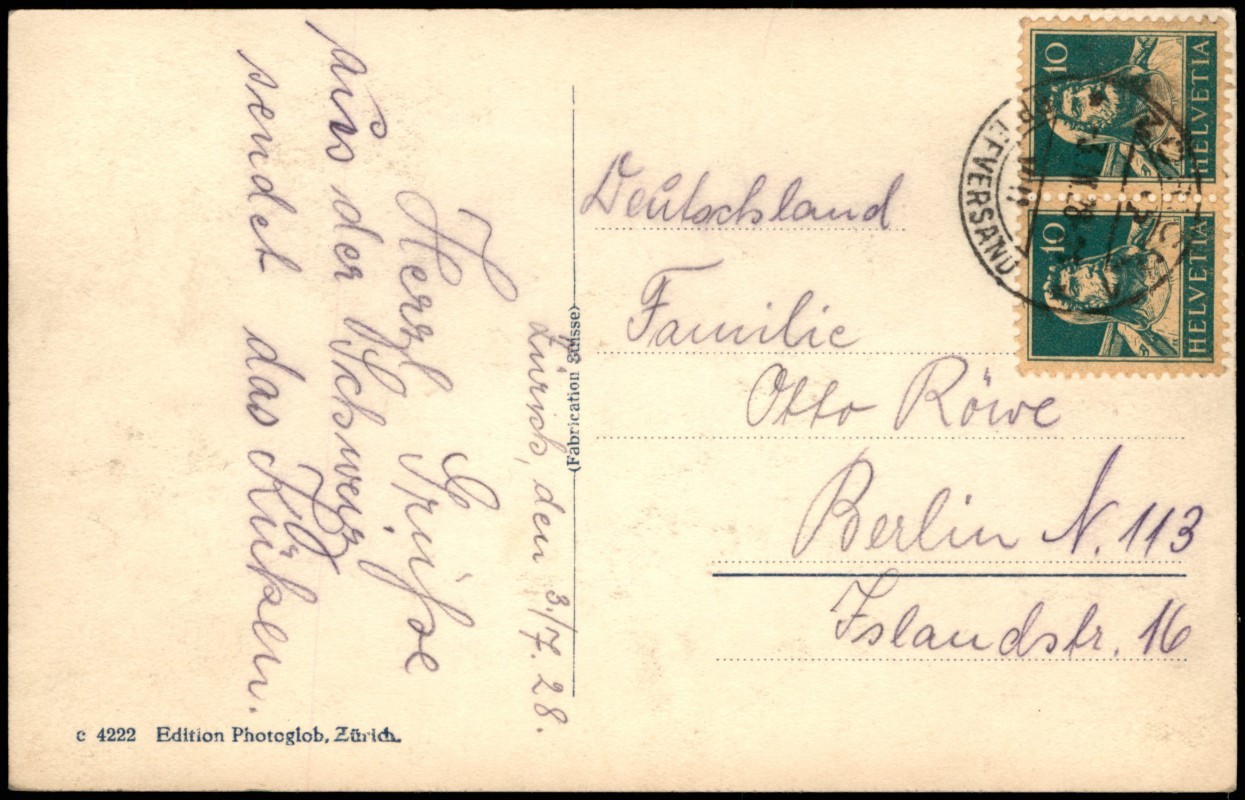 Zürich, den 3./7. 28.
Herzl Grüße
aus der Schweiz
sendet das Kücken.
(Fabrication Suisse)
c 4222 Edition Photoglob, Zürich.
Deutschland
Familie
Otto Röwe
Berlin N. 113
Islandstr. 16
10
HELVETIA
10
HELVETIA
BRIEFVERSAND